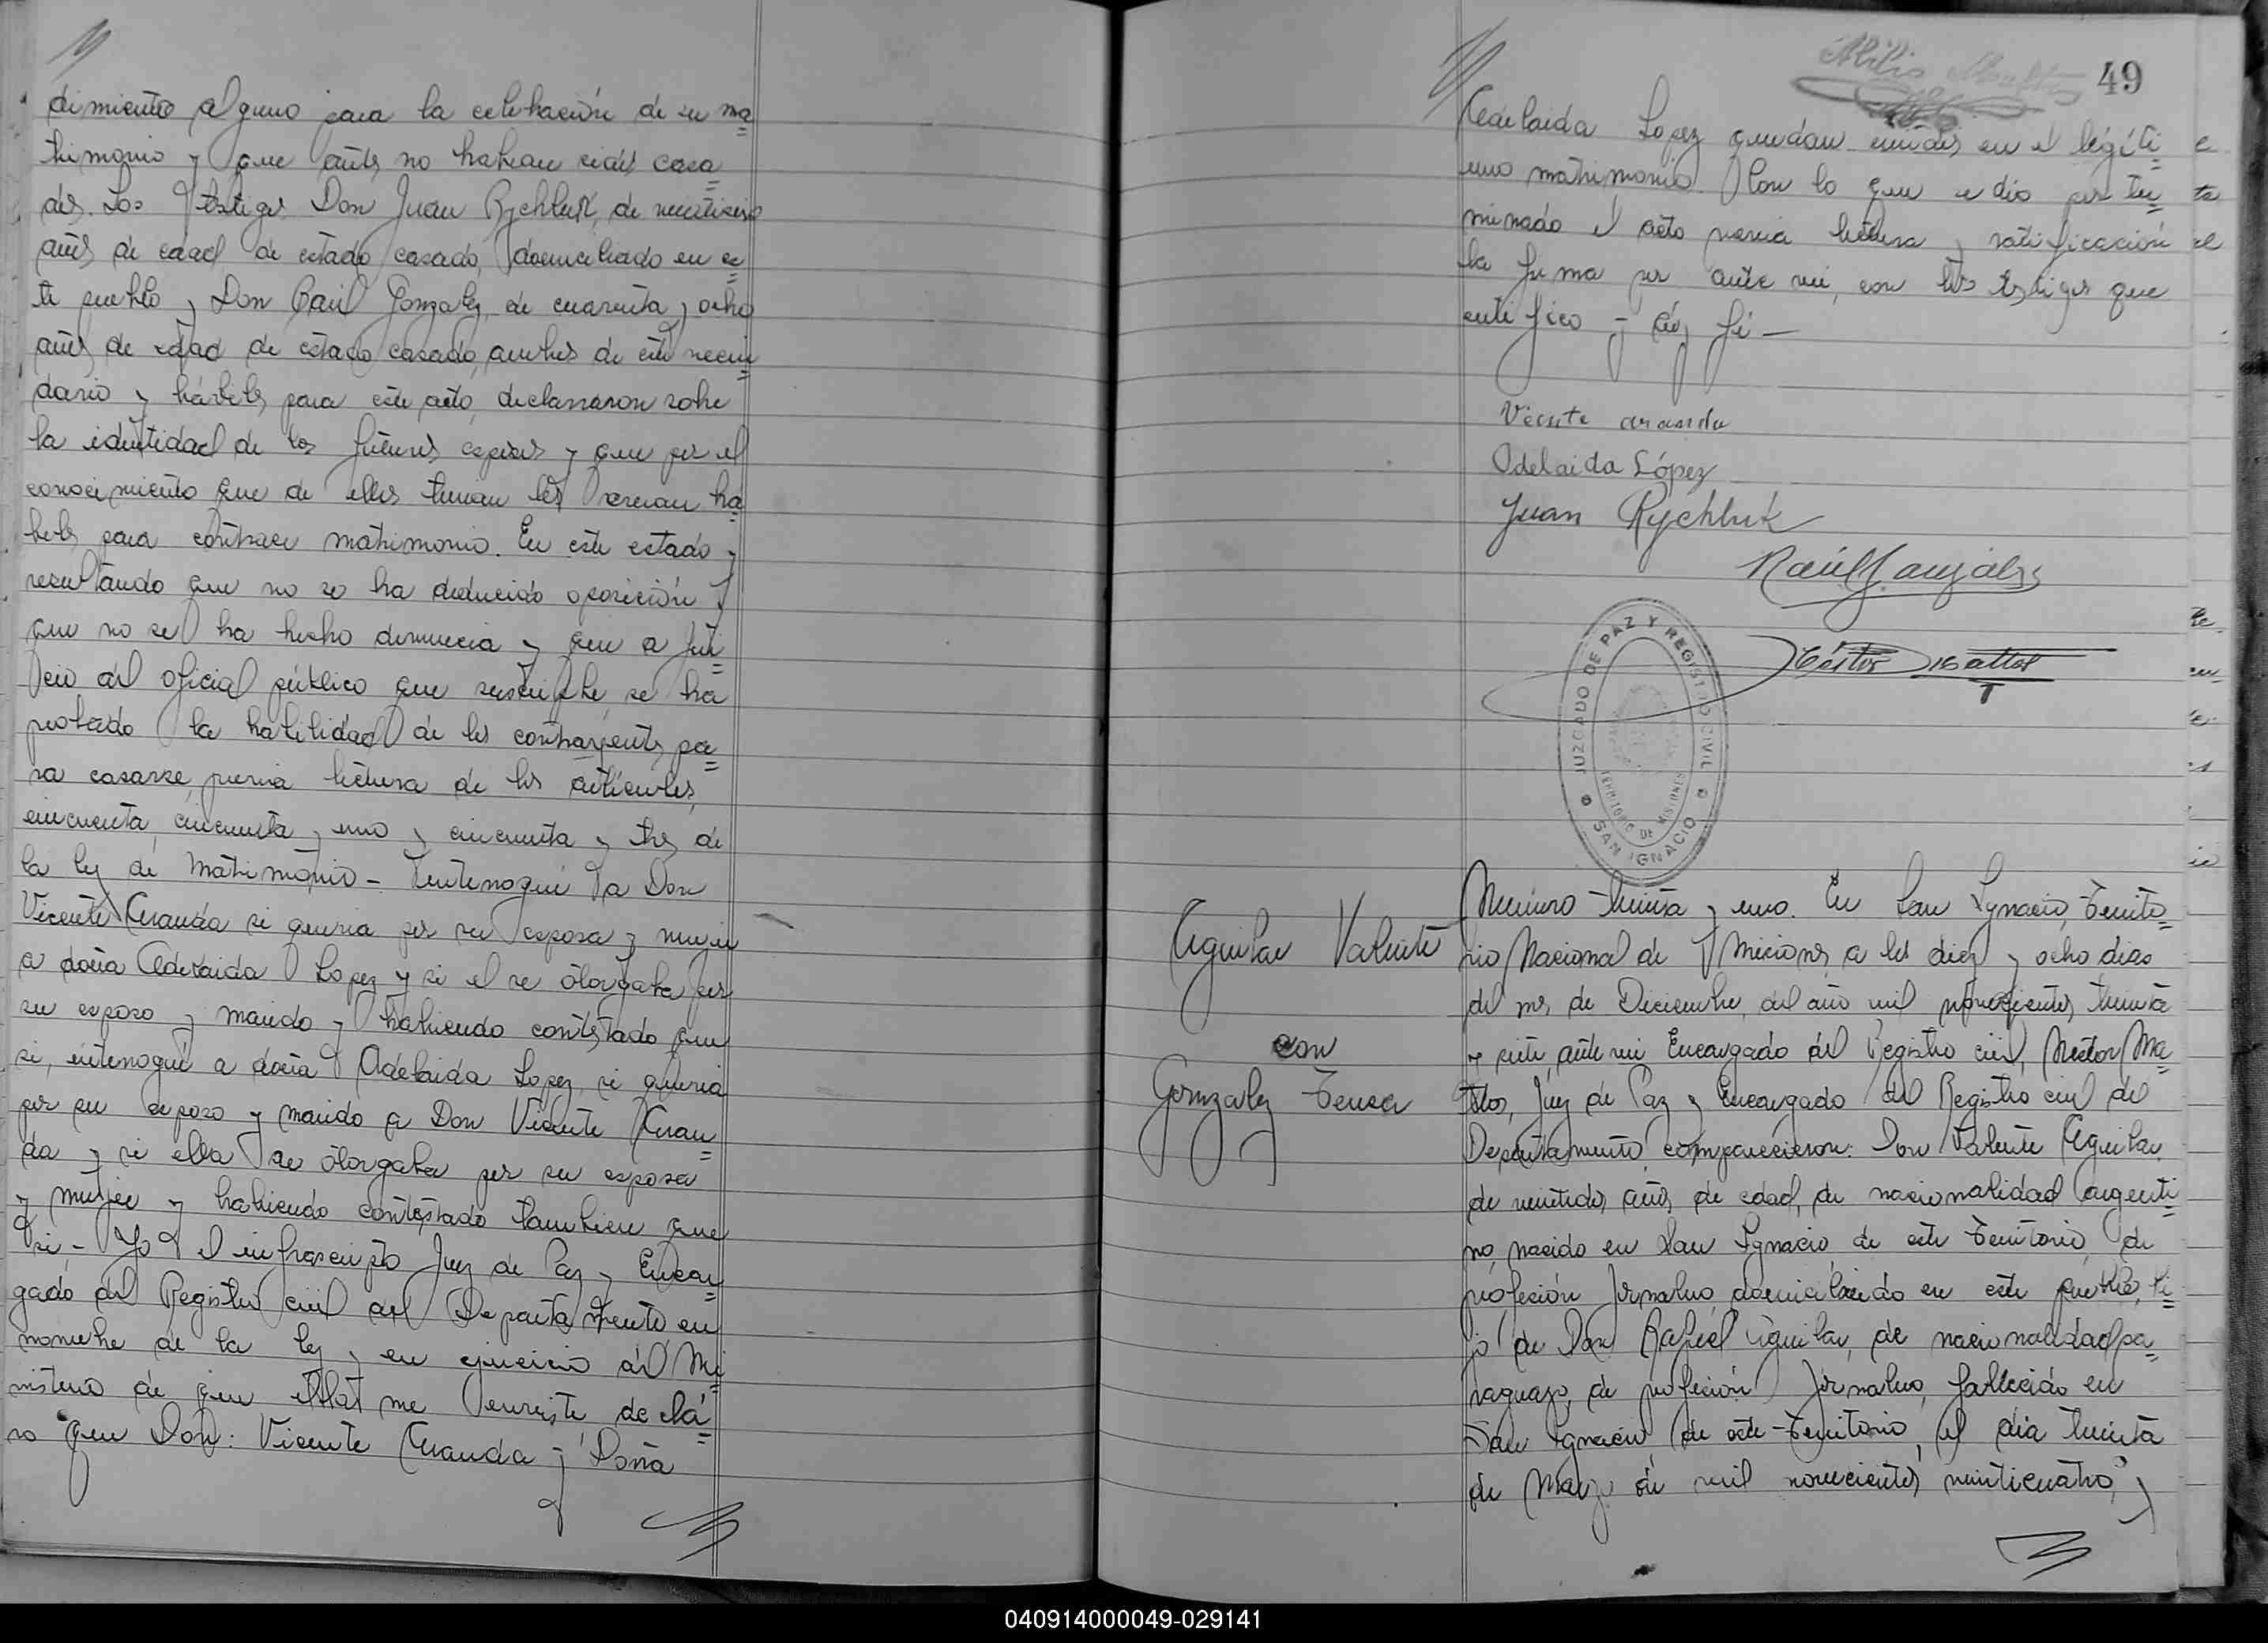 dimiento alguno para la celebración de su ma=
trimonio y que antes no habian sido casa=
dos. Los testigos Don Juan Rychluk, de veintiseis
años de edad de estado casado, domiciliado en es=
te pueblo y Don Raúl Gonzalez, de cuarenta y ocho
años de edad de estado casado, ambos de este vecin=
dario y hábiles para este acto, declararon sobre
la identidad de los futuros esposos y que por el
conocimiento que de ellos tenian los creian há=
biles para contraer matrimonio. En este estado y
resultando que no se ha deducido oposición y
que no se ha hecho denuncia y que a jui=
cio del oficial público que suscribe, se ha
probado la habilidad de los contrayentes pa=
ra casarse, previa lectura de los articulos,
cincuenta, cincuenta y uno y cincuenta y tres de
la ley de Matrimonio - Interrogué a Don
Vicente Aranda si queria por su esposa y mujer
a doña Adelaida Lopez y si el se otorgaba por
su esposo y marido y habiendo contestado que
si, interrogué a doña Adelaida Lopez, si queria
por su esposo y marido a Don Vicente Aran=
da y si ella se otorgaba por su esposa
y mujer y habiendo contestado tambien que
si - Yo el infrascripto Juez de Paz y Encar=
gado del Registro civil del Departamento, en
nombre de la ley y en ejercicio del Mi=
nisterio de que ella me enviste, declá=
ro que Don: Vicente Aranda y Doña
49
Adelaida Lopez quedan unidos en el legíti=
mo matrimonio. Con lo que se dio por ter=
minado el acto previa lectura y ratificación
la firma por ante mi, con los testigos que
certifico y doy fé —
Vicente aranda
Adelaida López
Juan Rychluk
Raúl Gonzáles
Néstor Mattos
JUZGADO DE PAZ Y REGISTRO CIVIL
TERRITORIO DE MISIONES
SAN IGNACIO
Aguilar Valente
con
Gonzalez Teresa
Número treinta y uno. En San Ignacio, Territo=
rio Nacional de Misiones, a los diez y ocho dias
del mes de Diciembre, del año mil novecientos treinta
y siete, ante mi Encargado del Registro civil, Néstor Ma=
ttos, Juez de Paz y Encargado del Registro civil del
Departamento, comparecieron: Don Valente Aguilar,
de veintidos años de edad, de nacionalidad argenti=
no, nacido en San Ignacio de este Territorio, de
profesión Jornalero, domiciliado en este pueblo, hi=
jo de Don Rafael Aguilar, de nacionalidad pa=
raguayo, de profesión Jornalero, fallecido en
San Ignacio de este Territorio, el dia treinta
de Marzo de mil novecientos veinticuatro, y
040914000049-029141